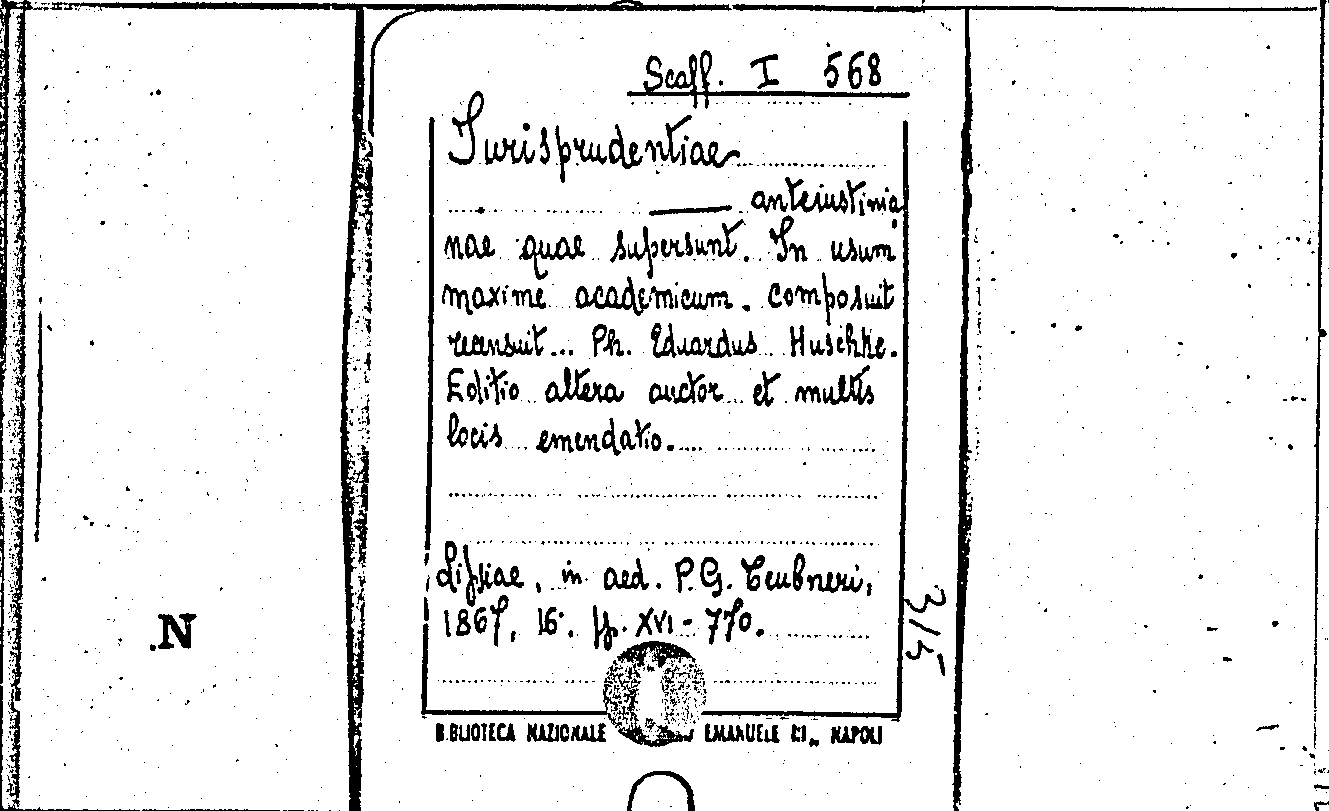 Scaff. I 568
Jurisprudentiae
anteiustinia
nae quae supersunt. In usum
maxime academicum. composuit
recensuit... Ph. Eduardus Huschke.
Editio altera auctor et multis
locis emendatio.
Lipsiae, in aed. P.G. Teubneri,
1867, 16°. pp. XVI - 770.
315
.N
BIBLIOTECA NAZIONALE EMANUELE III„ NAPOLI